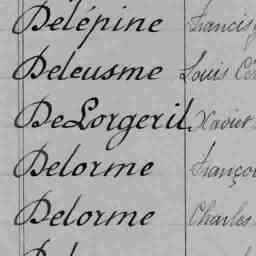 Delépine Francis
Deleusme Louis
DeLorgeril Xavier
Delorme
Delorme Charles